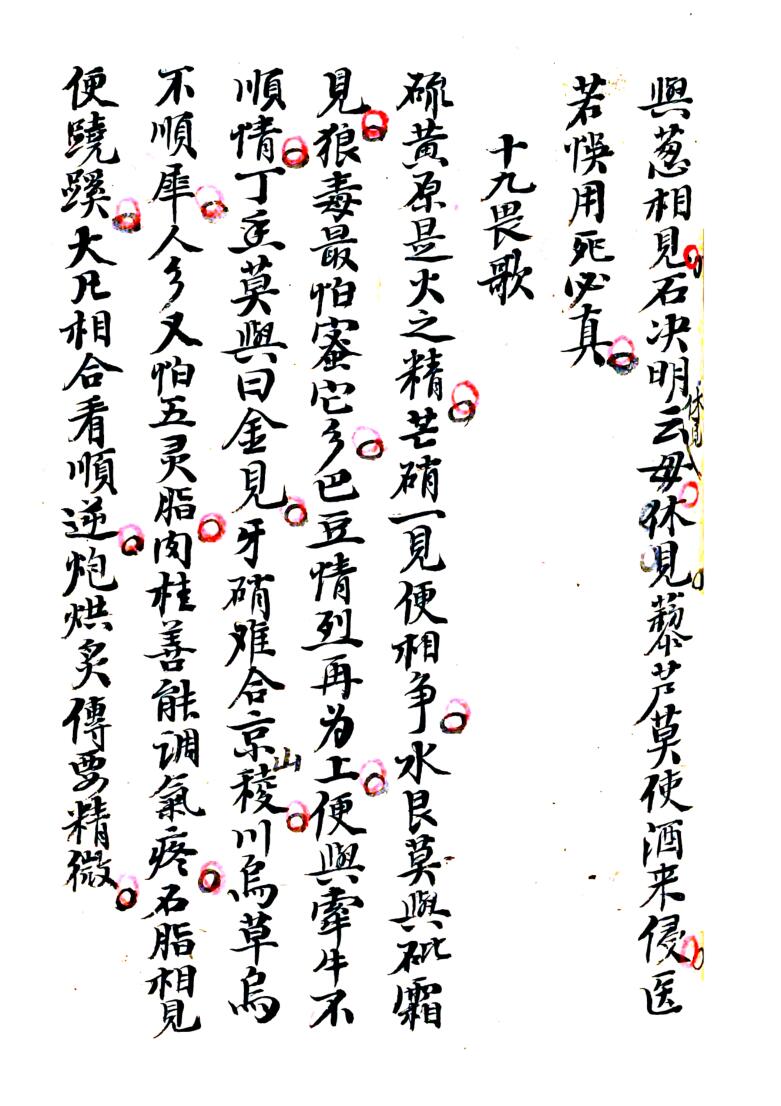 與葱相見石决明云毋休見藜芦莫使酒来侵医
休見
若悮用死必真
十九畏歌
硫黄原是火之精芒硝一見便相争水艮莫與砒霜
見狼毒最怕宻它多巴豆情烈再为上便與牽牛不
順情丁香莫與曰金見牙硝难合京稜川烏草烏
山
不順犀人多又怕五灵脂肉桂善能调氣疼石脂相見
便蹺蹊大凡相合看順逆炮烘炙傅要精微